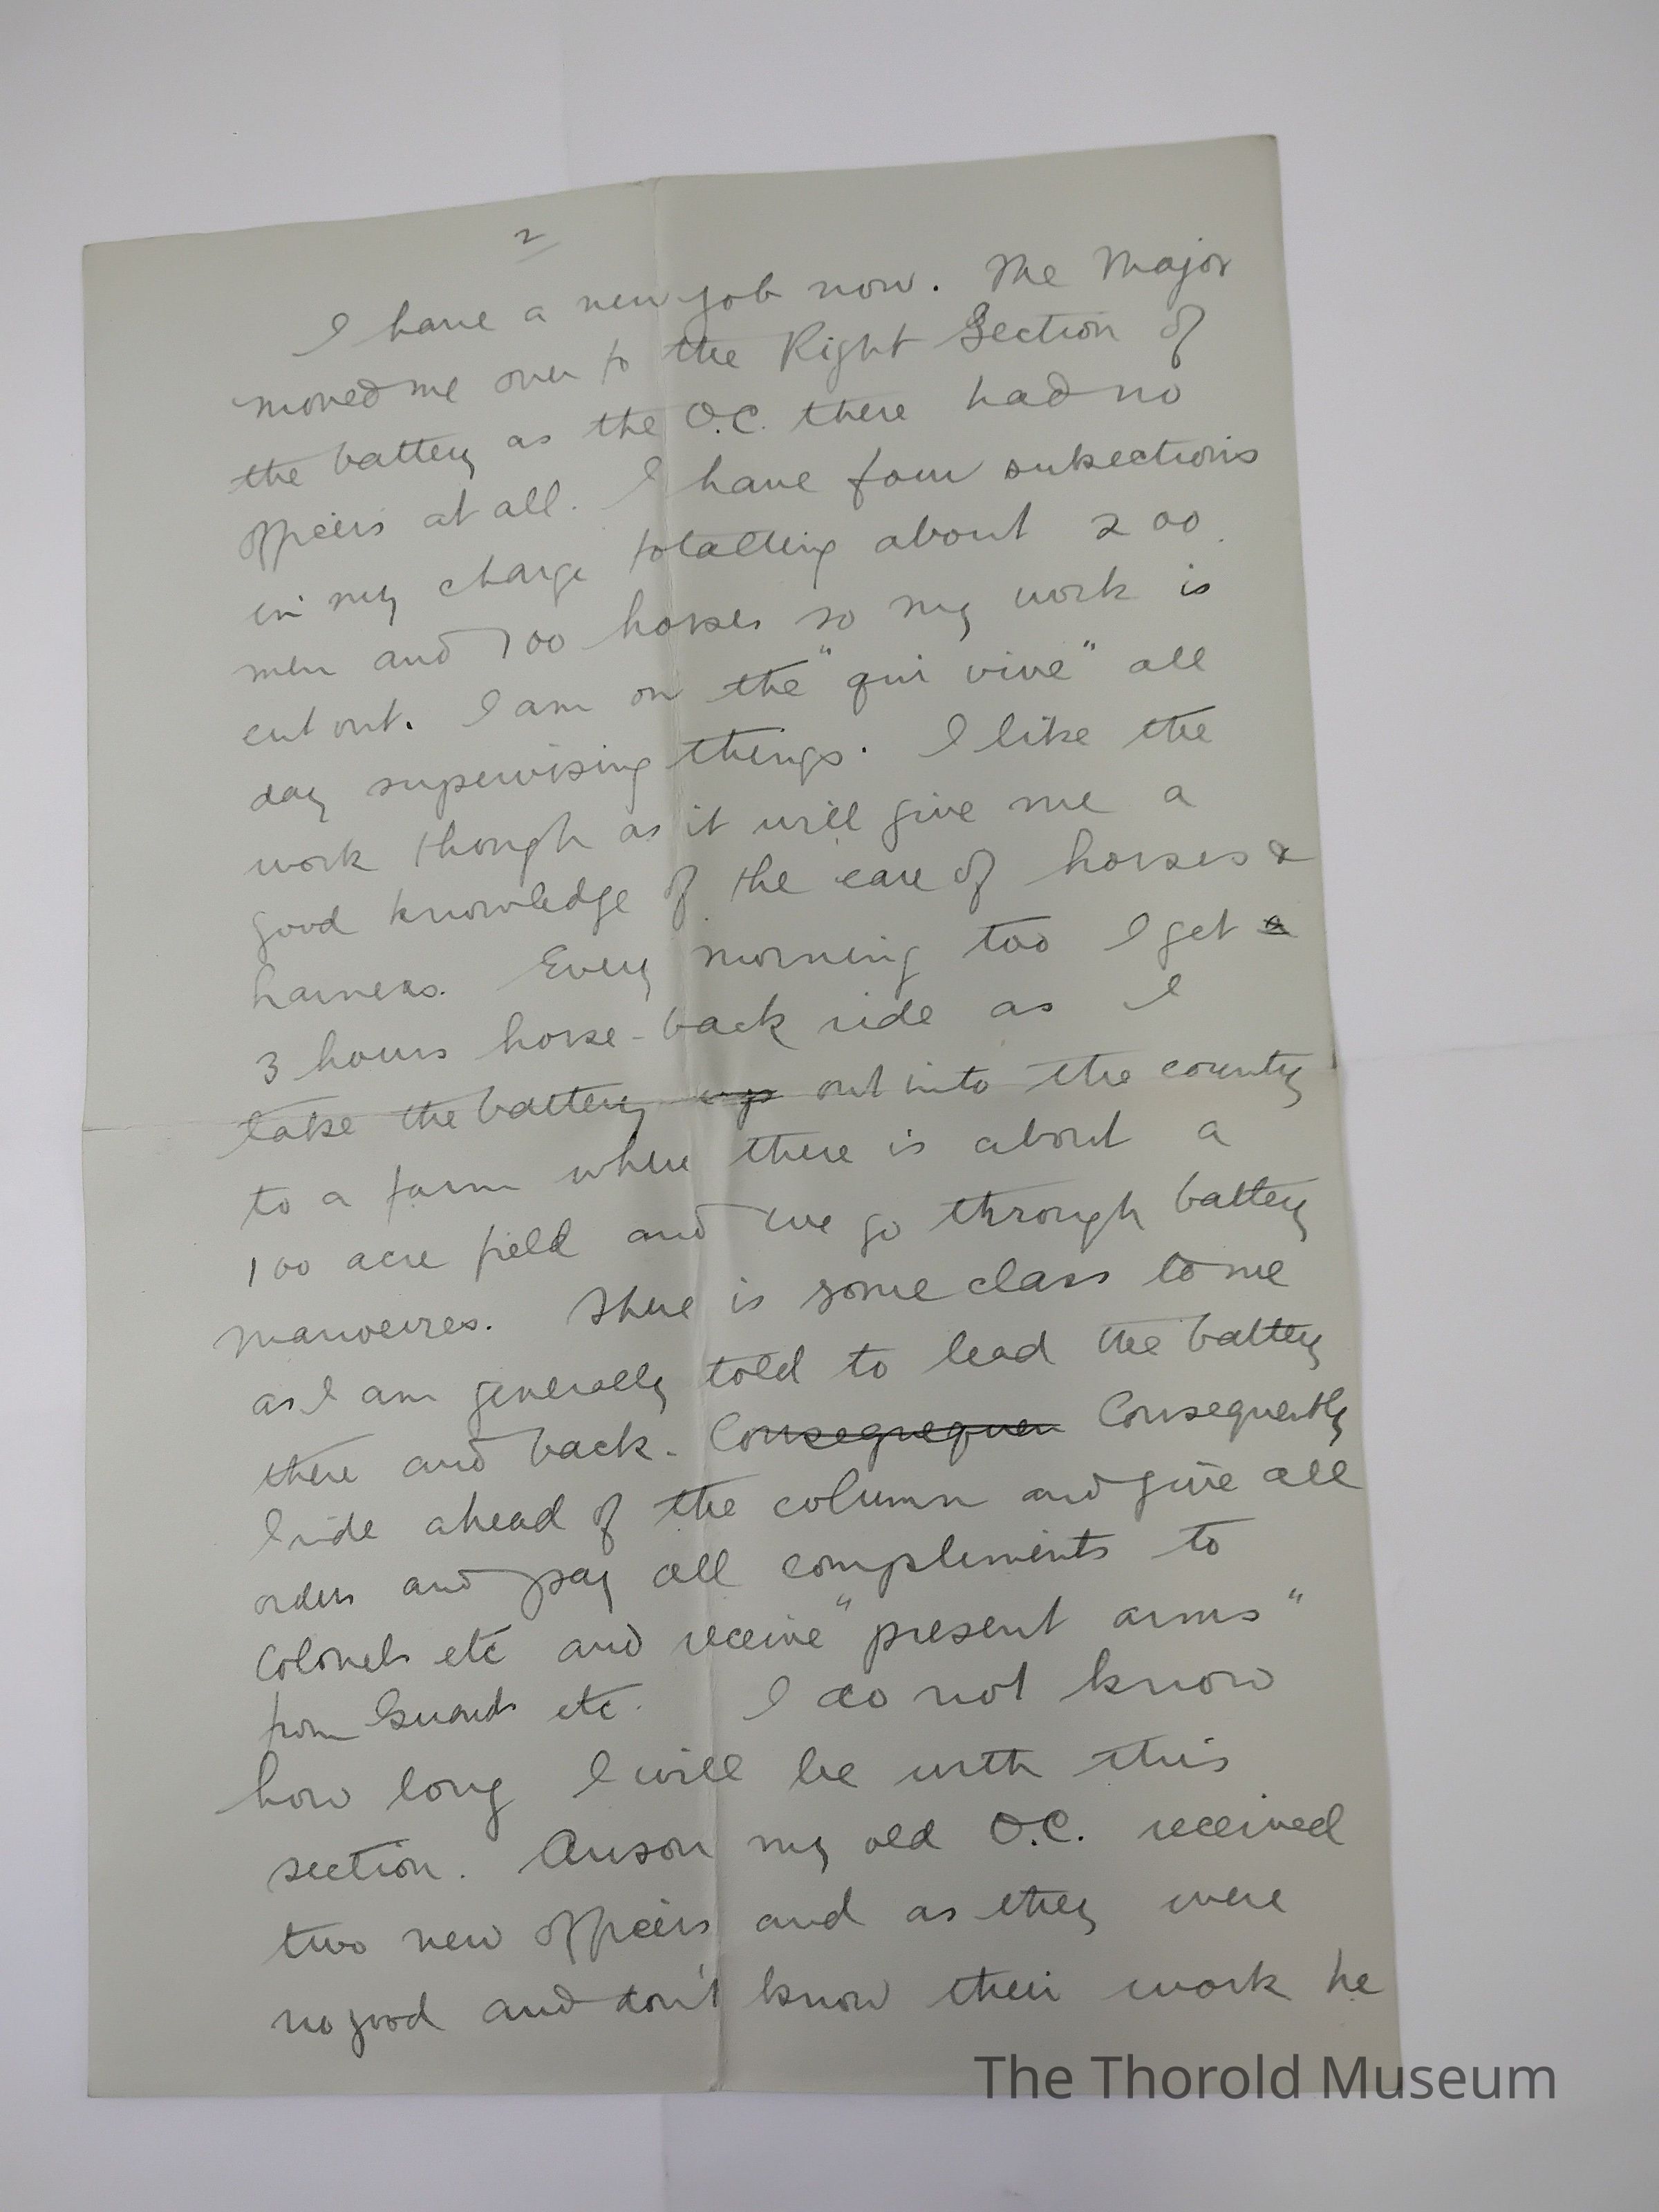 2
I have a new job now. The Major
moved me over to the Right Section of
the battery as the O.C. there had no
officers at all. I have four subsections
in my charge totalling about 200
men and 100 horses so my work is
cut out. I am on the "qui vive" all
day supervising things. I like the
work though as it will give me a
good knowledge of the care of horses &
harness. Every morning too I get a
3 hours horse-back ride as I
take the battery up out into the county
to a farm where there is about a
100 acre field and we go through battery
manoevres. There is some class to me
as I am generally told to lead the battery
there and back. Consequequen Consequently
I ride ahead of the column and give all
orders and pay all compliments to
Colonels etc and receive "present arms"
from Guards etc. I do not know
how long I will be with this
section. Anson my old O.C. received
two new officers and as they were
no good and don't know their work he
The Thorold Museum